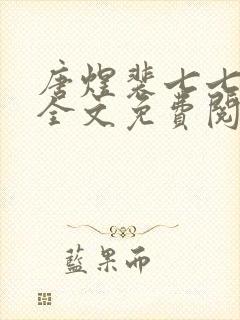 唐煌裴七七
全文免费阅
蓝果而